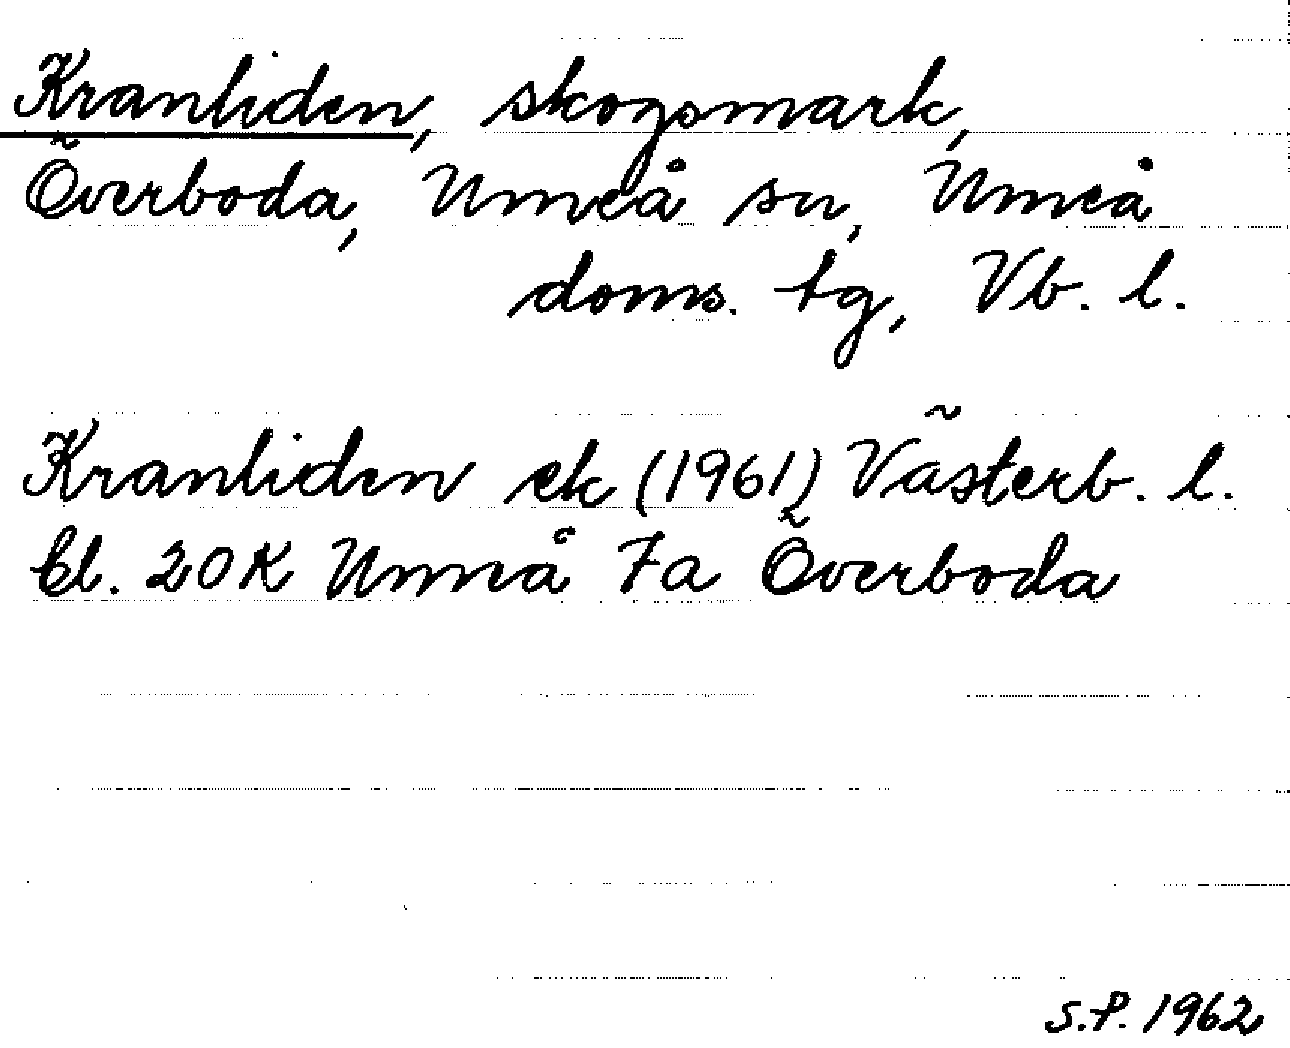 Kranliden, skogsmark,
Överboda, Umeå sn, Umeå
doms. tg, Vb. l.
Kranliden ek (1961) Västerb. l.
bl. 20K Umeå 7a Överboda
S.P. 1962